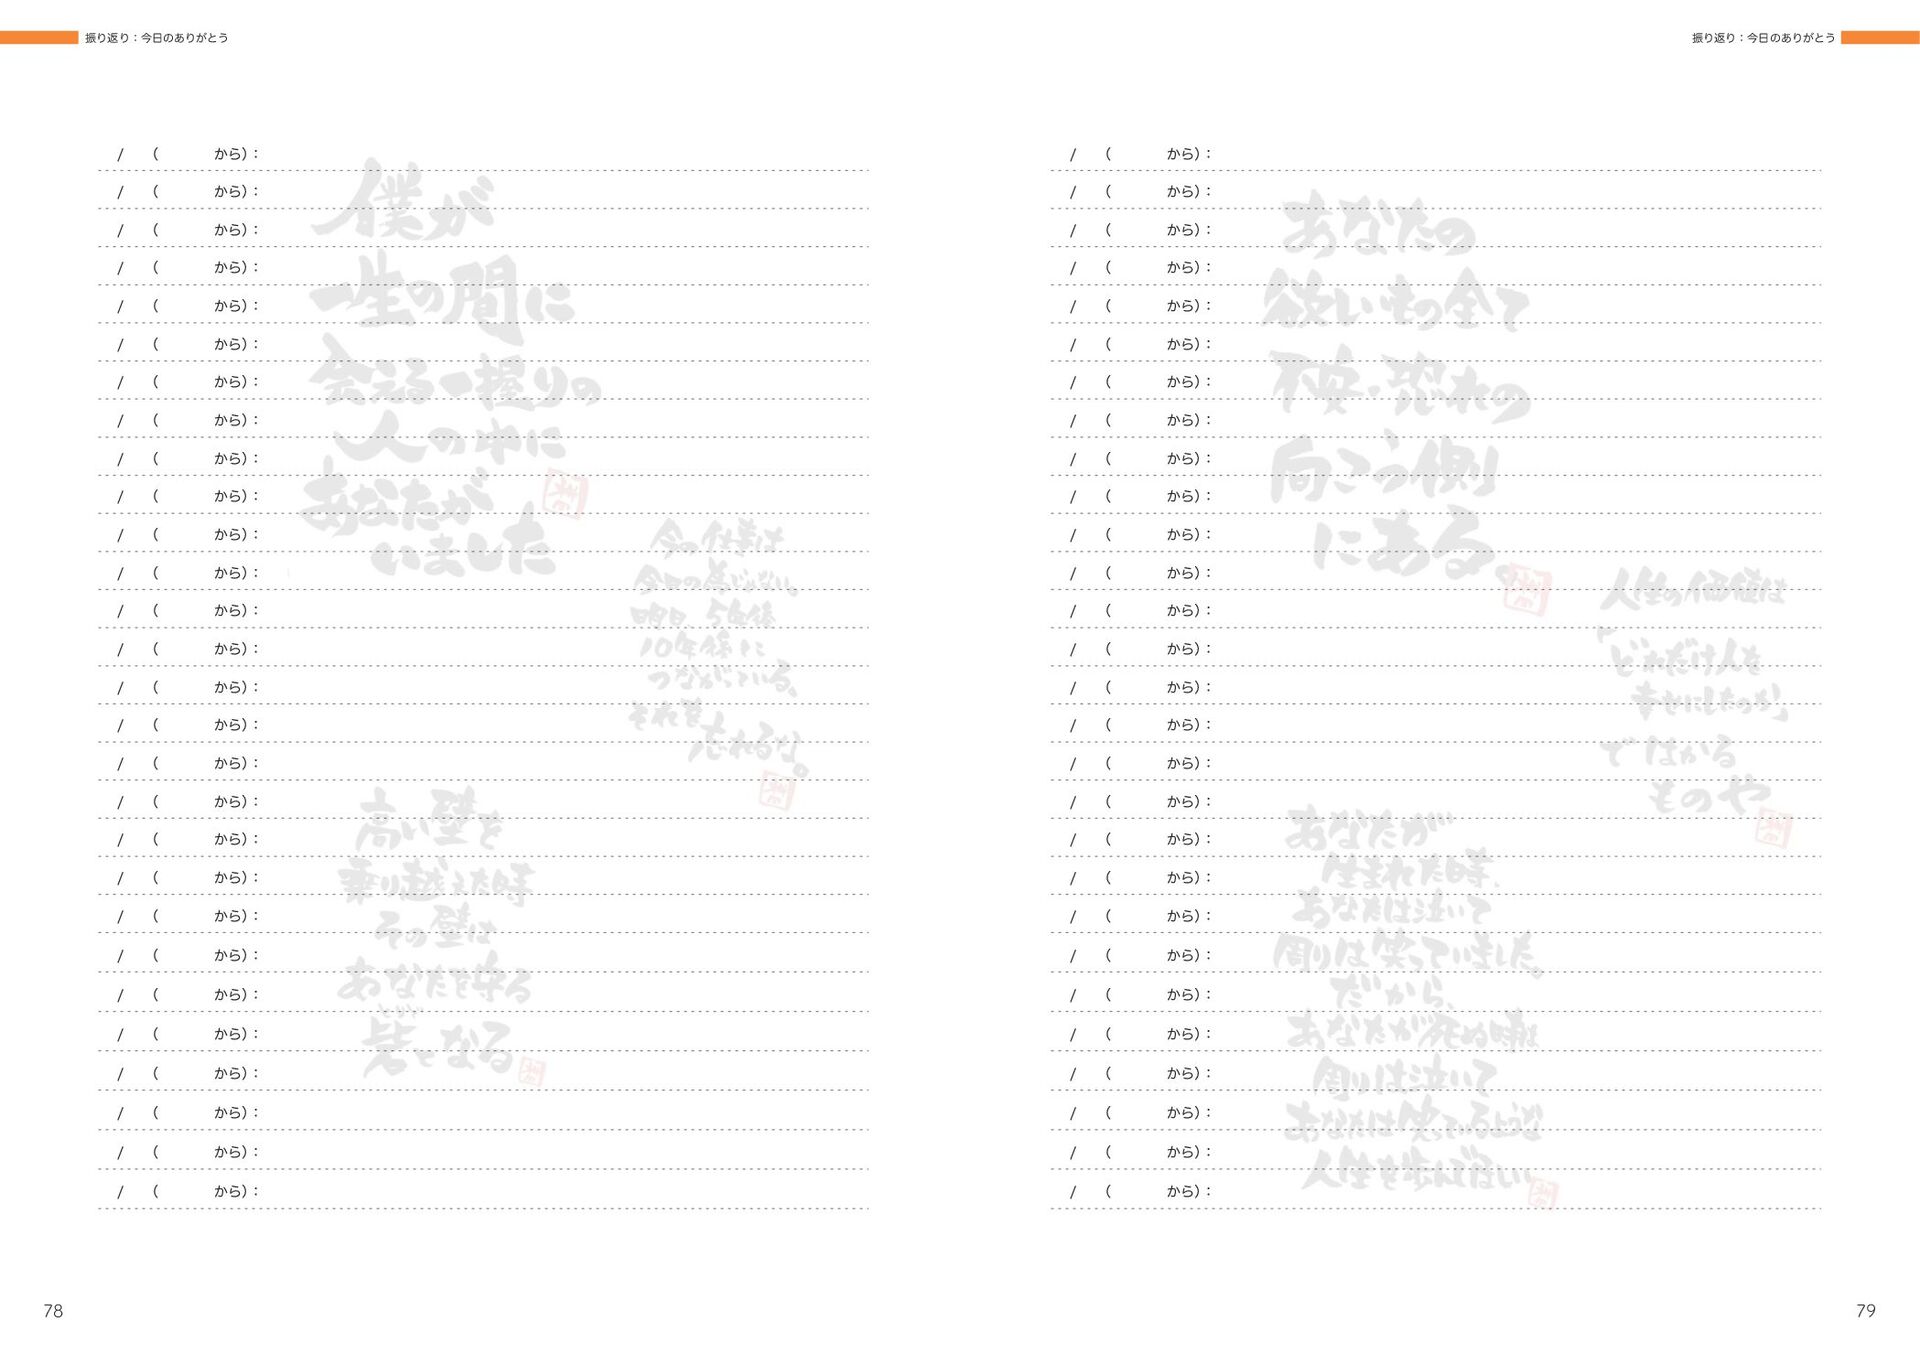 振り返り：今日のありがとう
/ （ から）：
/ （ から）：
/ （ から）：
/ （ から）：
/ （ から）：
/ （ から）：
/ （ から）：
/ （ から）：
/ （ から）：
/ （ から）：
/ （ から）：
/ （ から）：
/ （ から）：
/ （ から）：
/ （ から）：
/ （ から）：
/ （ から）：
/ （ から）：
/ （ から）：
/ （ から）：
/ （ から）：
/ （ から）：
/ （ から）：
/ （ から）：
/ （ から）：
/ （ から）：
/ （ から）：
/ （ から）：
僕が
一生の間に
会える一握りの
人の中に
あなたが
いました
今の仕事は
今日の為じゃない。
明日、5年後
10年後に
つながっている、
それを
忘れるな。
高い壁を
乗り越えた時
その壁は
あなたを守る
とりで
砦となる
78
振り返り：今日のありがとう
/ （ から）：
/ （ から）：
/ （ から）：
/ （ から）：
/ （ から）：
/ （ から）：
/ （ から）：
/ （ から）：
/ （ から）：
/ （ から）：
/ （ から）：
/ （ から）：
/ （ から）：
/ （ から）：
/ （ から）：
/ （ から）：
/ （ から）：
/ （ から）：
/ （ から）：
/ （ から）：
/ （ から）：
/ （ から）：
/ （ から）：
/ （ から）：
/ （ から）：
/ （ から）：
/ （ から）：
/ （ から）：
あなたの
欲しいもの全て
不安・恐れの
向こう側
にある。
人生の価値は
「どれだけ人を
幸せにしたのか」
ではかる
ものや
あなたが
生まれた時、
あなたは泣いて
周りは笑っていました。
だから、
あなたが死ぬ時は
周りは泣いて
あなたは笑っているような
人生を歩んでほしい
79